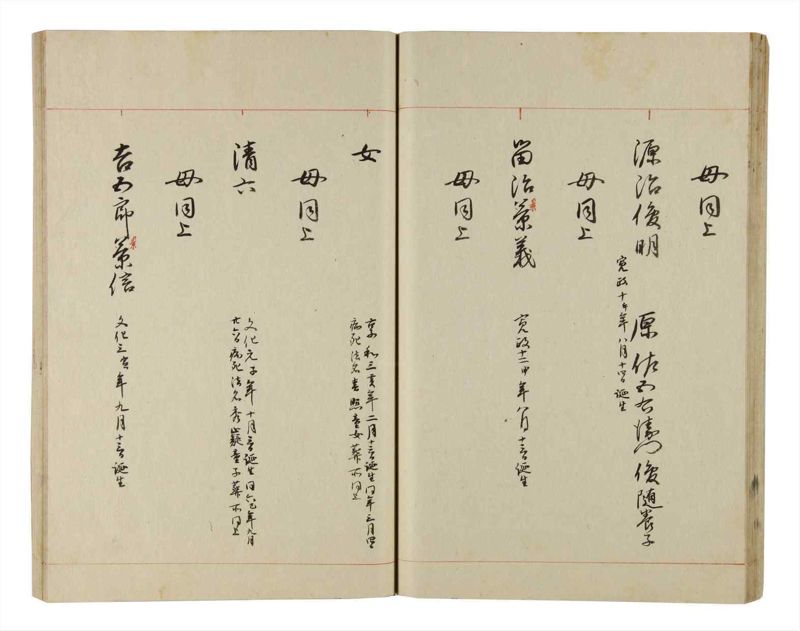 母同上
源治俊明 原佐五右衛門俊随養子
寛政十午年八月十四日誕生
母同上
留治策義
寛政十二申年八月十三日誕生
母同上
女
享和三亥年二月十三日誕生同年三月四日
病死法名春照童女葬所同上
母同上
清六
文化元子年十月三日誕生同六巳年九月
廿六日病死法名秀巖童子葬所同上
母同上
吉五郎策信
文化三寅年九月十三日誕生